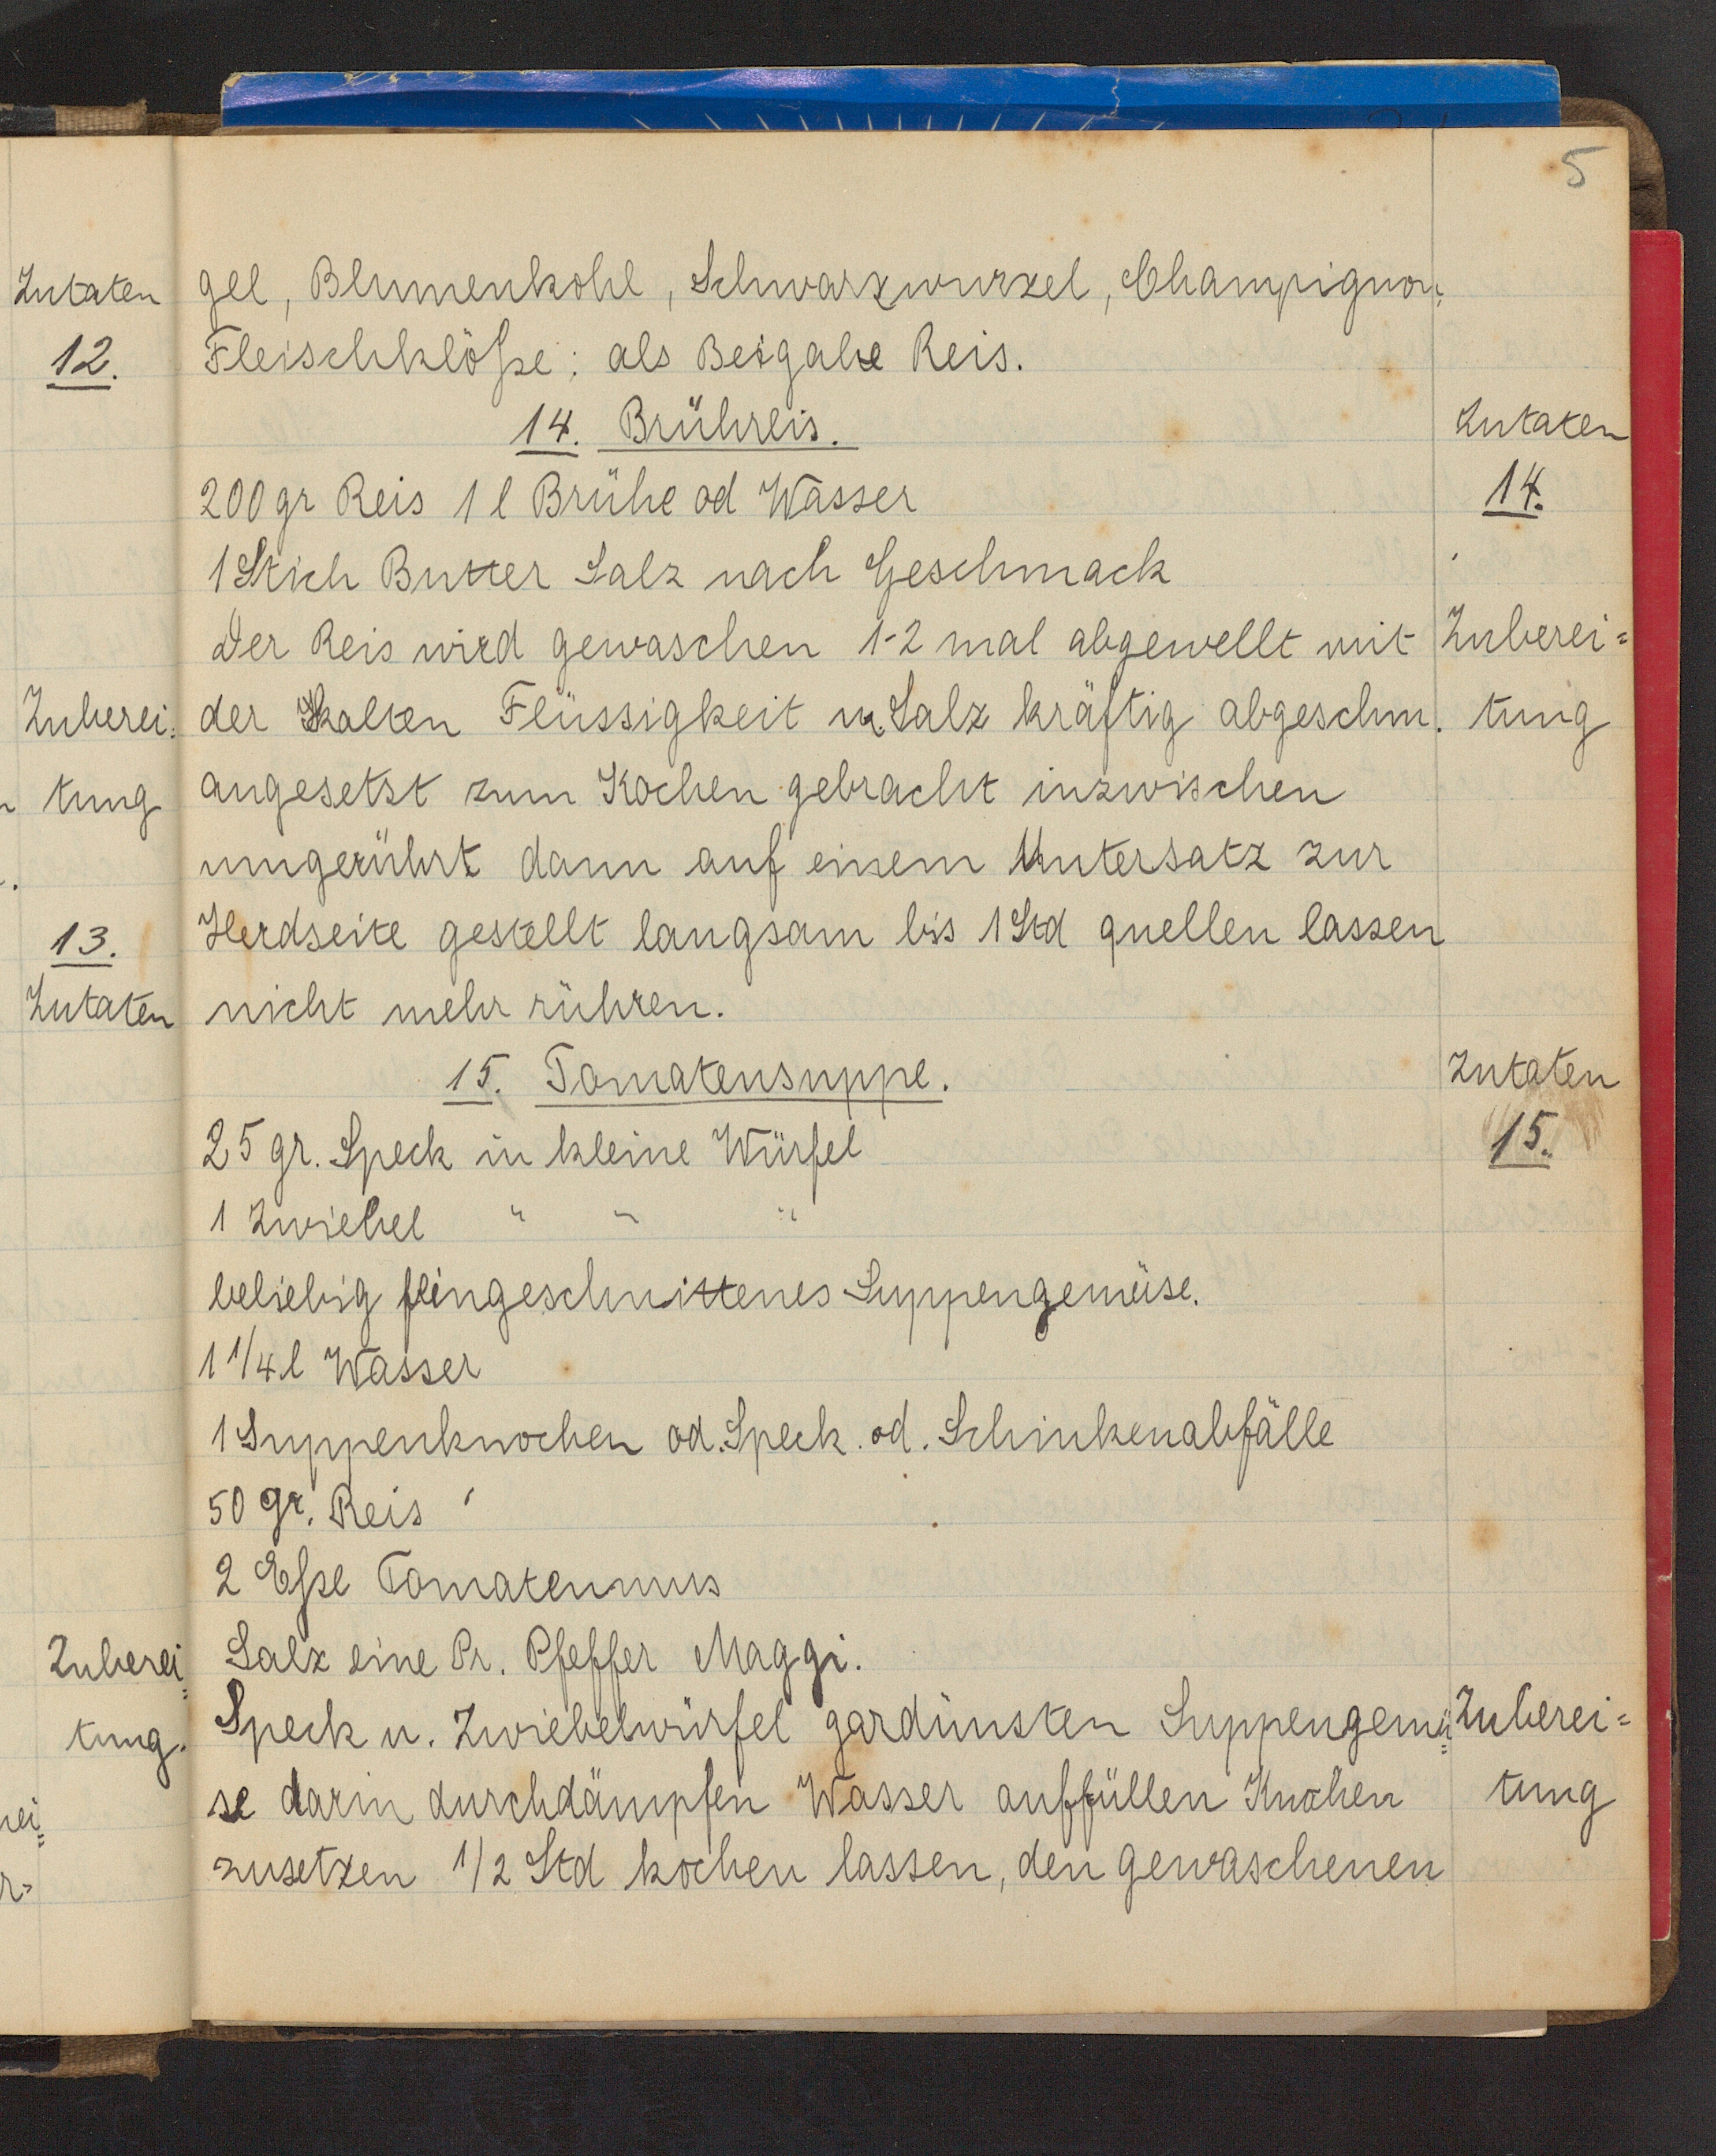 5
Zutaten
12.
Zuberei=
tung
13.
Zutaten
Zuberei=
tung.
gel, Blumenkohl, Schwarzwurzel, Champignon,
Fleischklöße; als Beigabe Reis.
14. Brühreis.
Zutaten
14.
200 gr Reis 1 l Brühe od Wasser
1 Stich Butter Salz nach Geschmack
Der Reis wird gewaschen 1-2 mal abgewellt mit
Zuberei=
der kalten Flüssigkeit u. Salz kräftig abgeschm.
tung
angesetzt zum Kochen gebracht inzwischen
umgerührt dann auf einem Untersatz zur
Herdseite gestellt langsam bis 1 Std quellen lassen
nicht mehr rühren.
15. Tomatensuppe.
Zutaten
15.
25 gr. Speck in kleine Würfel
1 Zwiebel " " "
beliebig feingeschnittenes Suppengemüse.
1 1/4 l Wasser
1 Suppenknochen od. Speck. od. Schinkenabfälle
50 gr. Reis
2 Eßl Tomatenmus
Salz eine Pr. Pfeffer Maggi.
Speck u. Zwiebelwürfel gardünsten Suppengemü=
Zuberei=
se darin durchdämpfen Wasser auffüllen Knochen
tung
zusetzen 1/2 Std kochen lassen, den gewaschenen